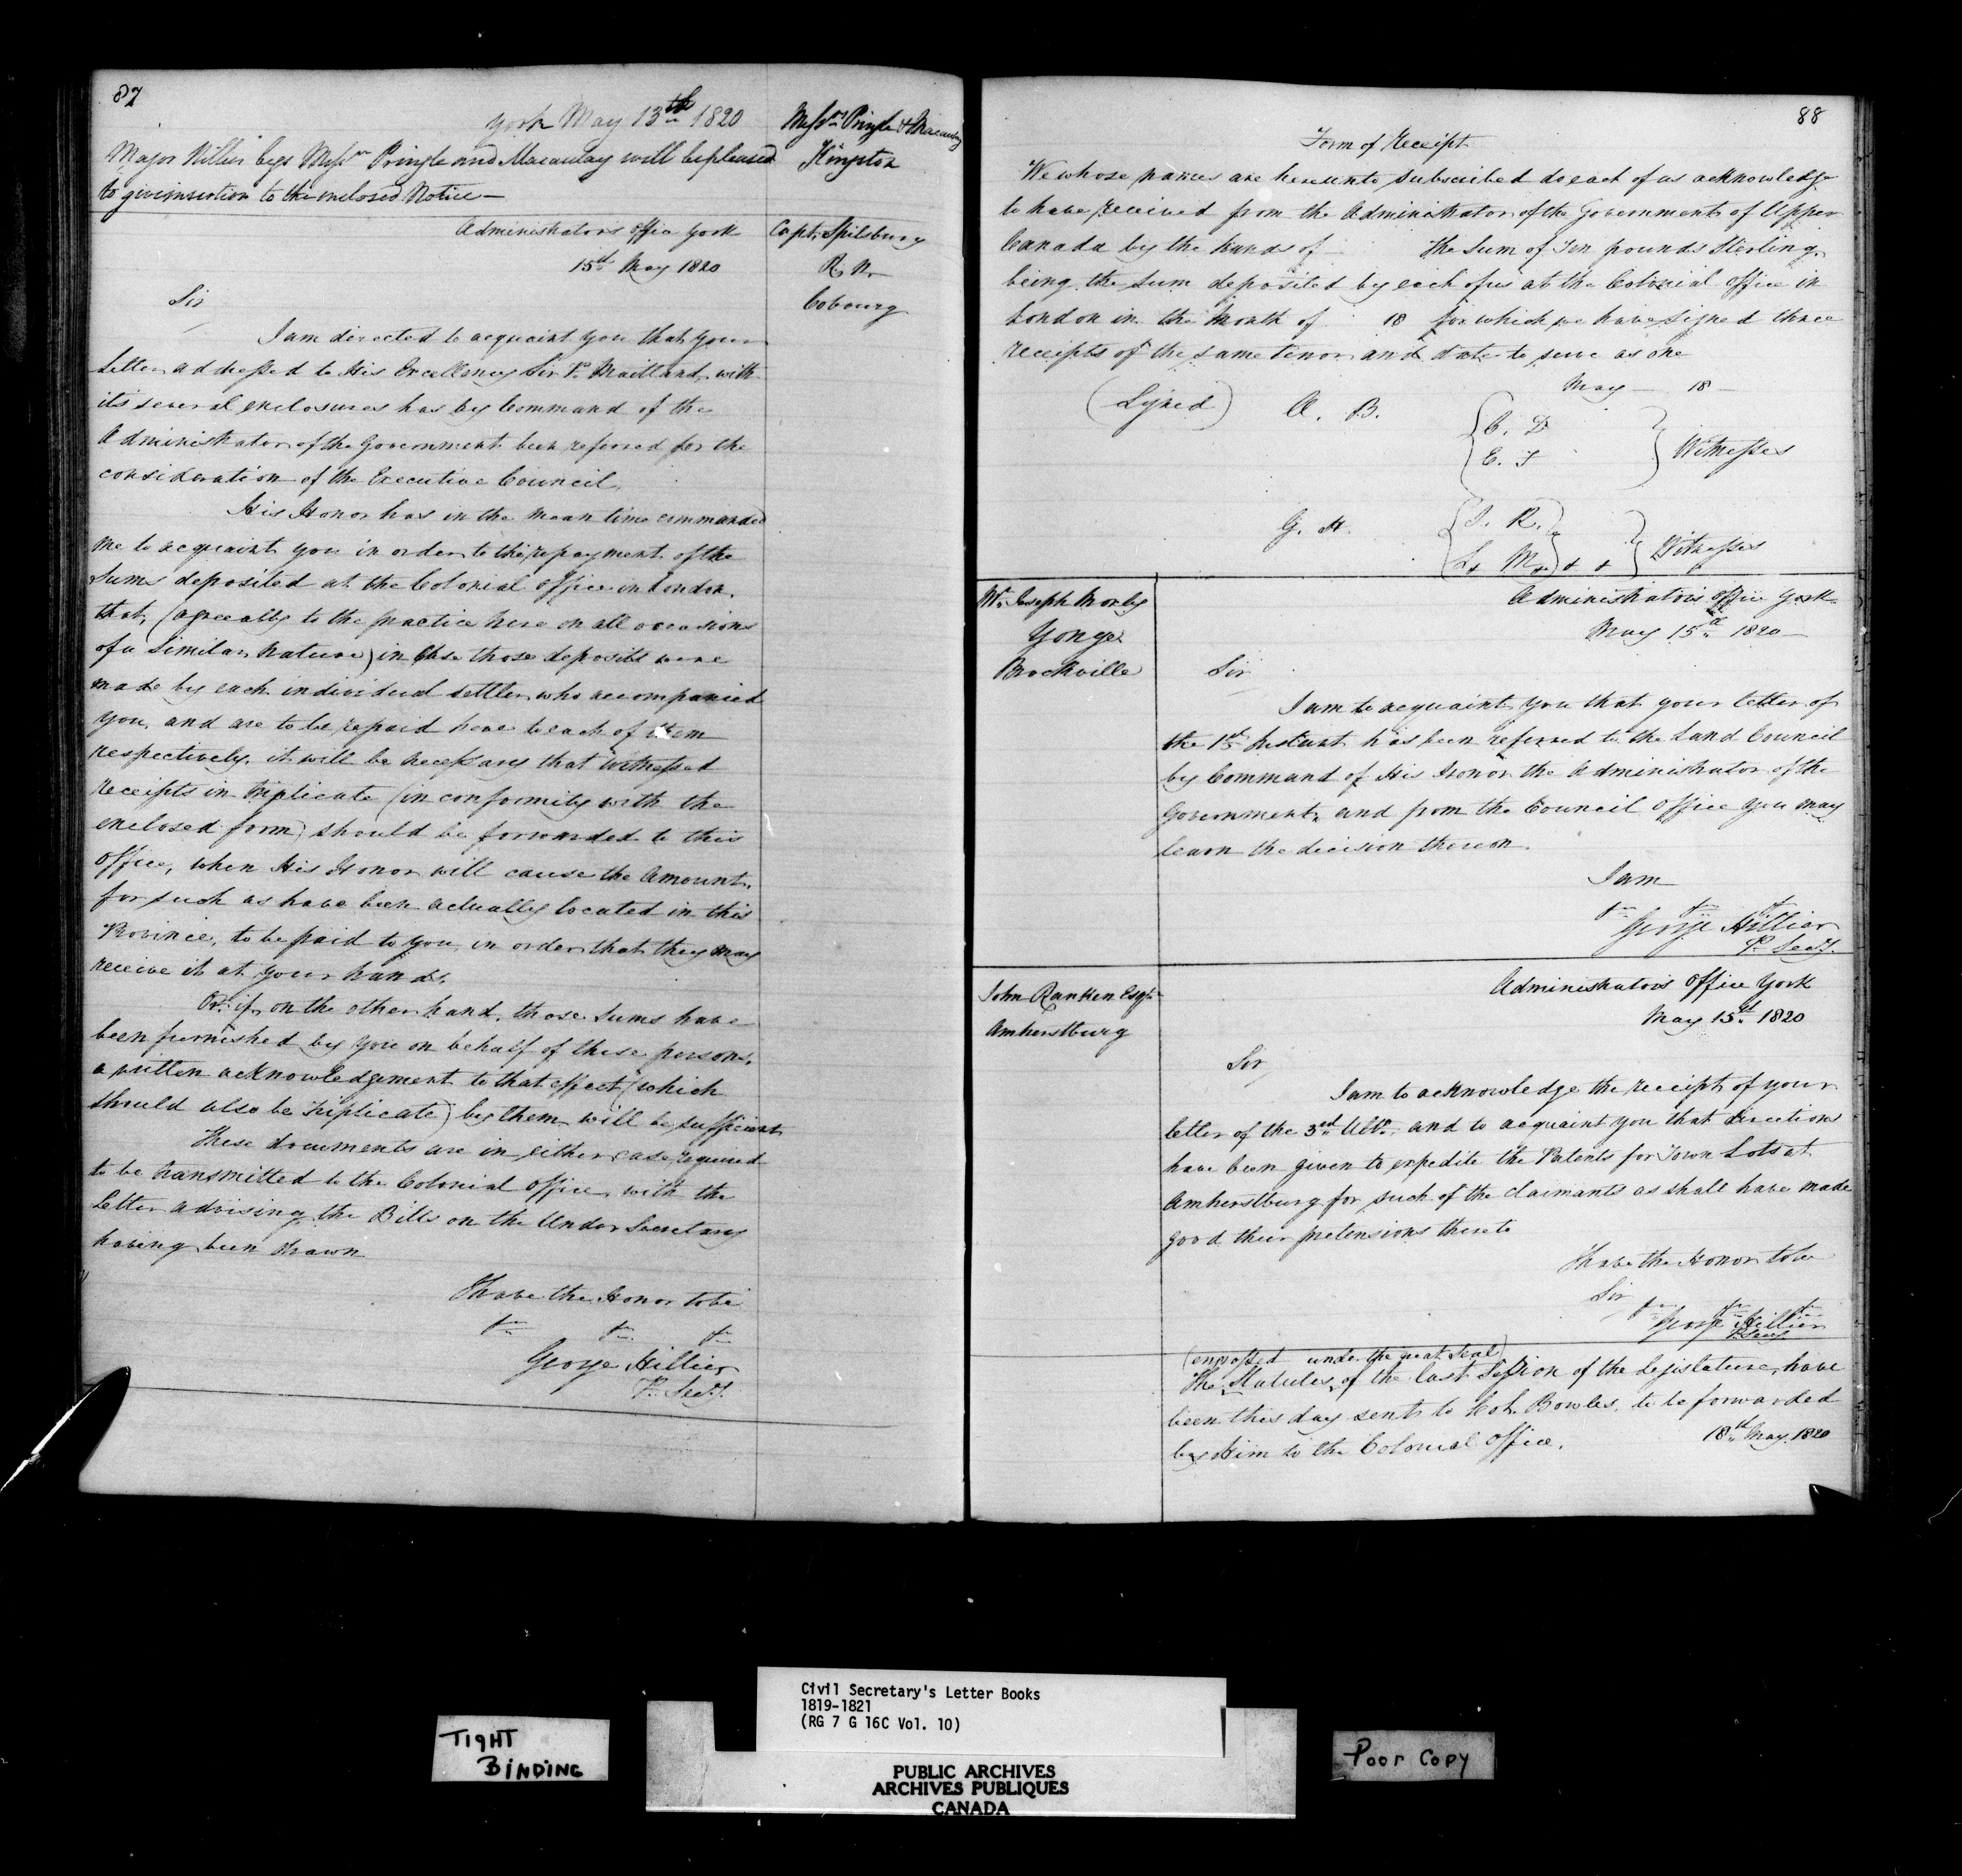 87
York May 13th 1820
Messrs Pringle & Macaulay
Kingston
Major Hillier begs Messrs Pringle and Macaulay will be pleased
to give insertion to the enclosed Notice —
Administrators Office York
15th May 1820
Capt. Spilsbury
R. N.
Cobourg
Sir
I am directed to acquaint you that your
letter addressed to His Excellency Sir P. Maitland, with
its several enclosures has by Command of the
Administrator of the Government been referred for the
consideration of the Executive Council.
His Honor has in the mean time commanded
me to acquaint you in order to the repayment of the
Sums deposited at the Colonial Office in London,
that, (agreeably to the practice here on all occasions
of a Similar Nature) in case those deposits were
made by each individual settler who accompanied
you, and are to be repaid here to each of them
respectively, it will be necessary that witnessed
receipts in triplicate (in conformity with the
enclosed form) should be forwarded to this
Office, when His Honor will cause the Amount,
for such as have been actually located in this
Province, to be paid to you, in order that they may
receive it at your hands.
Or if, on the other hand, those Sums have
been furnished by you on behalf of these persons,
a written acknowledgement to that effect (which
should also be triplicate) by them will be sufficient
These documents are in either case required
to be transmitted to the Colonial Office, with the
Letter advising the Bills on the Under Secretary
having been drawn
I have the Honor to be
&c &c &c
George Hillier
P. Secy.
88
Form of Receipt
We whose names are hereunto subscribed do each of us acknowledge
to have received from the Administrator of the Government of Upper
Canada by the hands of the Sum of Ten pounds Sterling,
being the sum deposited by each of us at the Colonial Office in
London in the Month of 18 for which we have signed three
receipts of the same tenor and date to serve as one
May — 18 —
(Signed) A. B. { C. D
{ E. F } Witnesses
G. H.
L. M. & & } Witnesses
Mr. Joseph Morley
Yonge
Brockville
Administrators Office York
May 15th 1820
Sir
I am to acquaint you that your letter of
the 1st Instant has been referred to the Land Council
by Command of His Honor the Administrator of the
Government, and from the Council Office you may
learn the decision thereon.
I am
&c &c &c
George Hillier
P. Secy.
John Ranken Esqr.
Amherstburg
Administrators Office York
May 15th 1820
Sir
I am to acknowledge the receipt of your
letter of the 3rd Ulto. and to acquaint you that directions
have been given to expedite the Patents for Town Lots at
Amherstburg for such of the Claimants as shall have made
good their pretensions thereto
I have the Honor to be
Sir
&c &c &c
George Hillier
P. Secy
(engrossed under the great Seal)
The Statutes, of the last Session of the Legislature, have
been this day sent to Col. Bowles, to be forwarded
by Him to the Colonial Office.
18th May 1820
Civil Secretary's Letter Books
1819-1821
(RG 7 G 16C Vol. 10)
TIGHT
BINDING
Poor Copy
PUBLIC ARCHIVES
ARCHIVES PUBLIQUES
CANADA